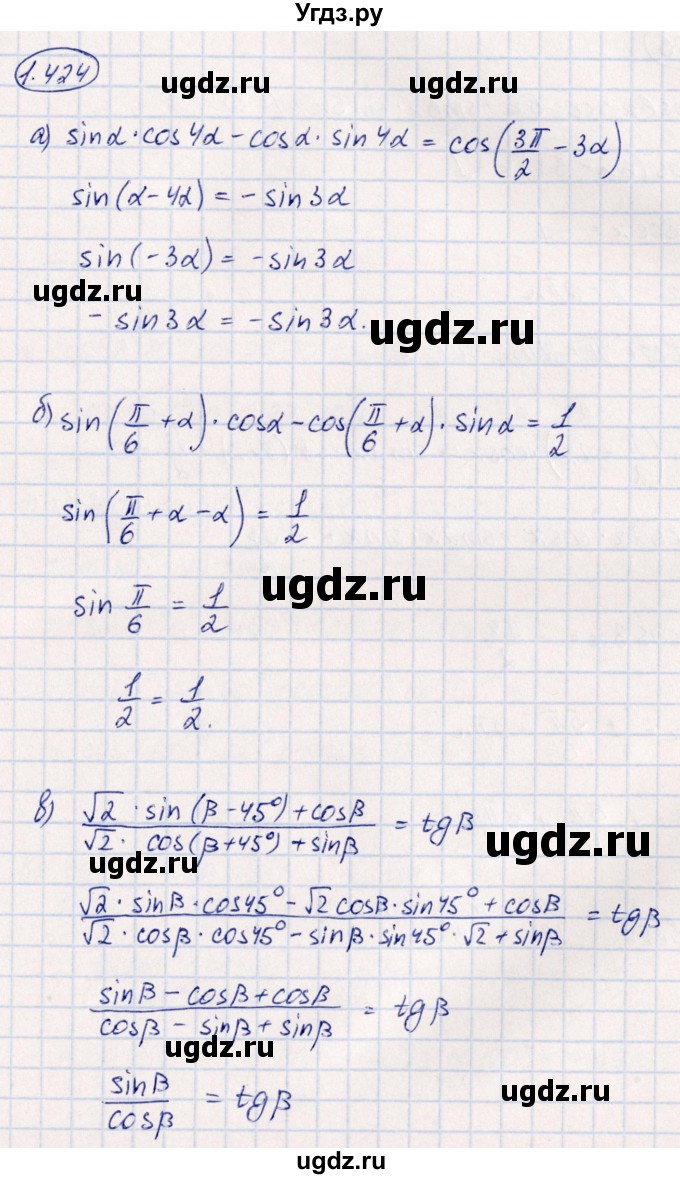 Угдз.ру
1.424
ugdz.ru ugdz.ru
а) sinα · cos4α - cosα · sin4α = cos(3π/2 - 3α)
sin(α - 4α) = - sin3α
sin(-3α) = - sin3α
ugdz.ru
- sin3α = - sin3α.
ugdz.ru
б) sin(π/6 + α) · cosα - cos(π/6 + α) · sinα = 1/2
sin(π/6 + α - α) = 1/2
ugdz.ru
sin π/6 = 1/2
1/2 = 1/2.
в) (√2 · sin(β - 45°) + cosβ)/(√2 · cos(β + 45°) + sinβ) = tgβ
ugdz.ru
ugdz.ru
(√2 · sinβ · cos45° - √2 cosβ · sin45° + cosβ)/(√2 · cosβ · cos45° - sinβ · sin45° · √2 + sinβ) = tgβ
(sinβ - cosβ + cosβ)/(cosβ - sinβ + sinβ) = tgβ
ugdz.ru
sinβ/cosβ = tgβ
ugdz.ru
ugdz.ru